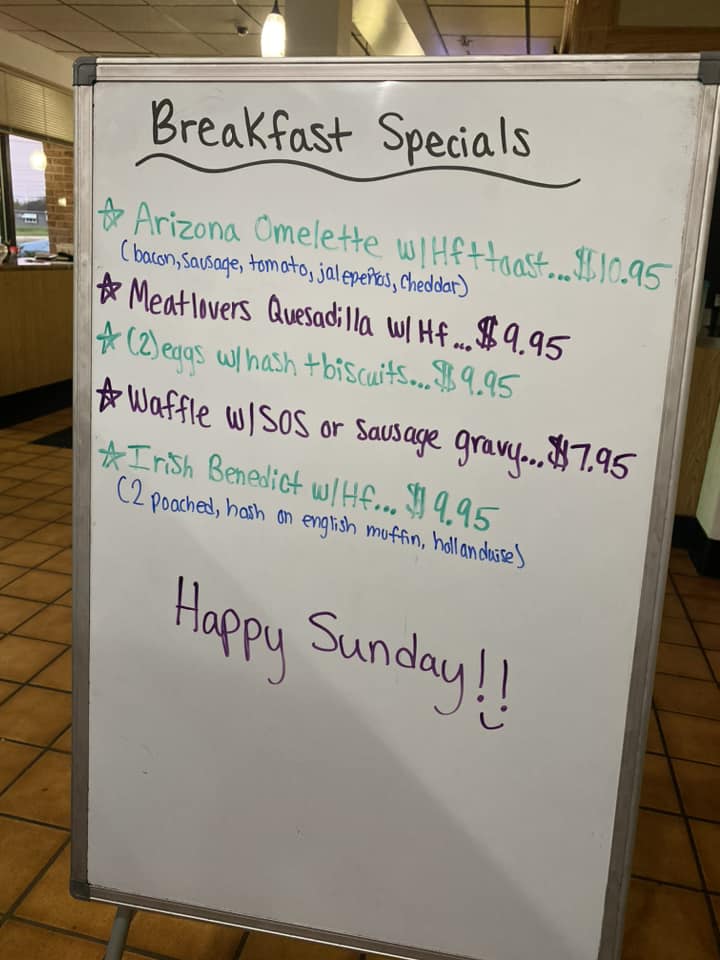 Breakfast Specials
☆ Arizona Omelette w/Hf+toast...$10.95
(bacon, sausage, tomato, jalepeños, cheddar)
☆ Meatlovers Quesadilla w/ Hf...$9.95
☆ (2)eggs w/hash +biscuits...$9.95
☆ Waffle w/SOS or sausage gravy...$7.95
☆ Irish Benedict w/Hf...$9.95
(2 poached, hash on english muffin, hollandaise)
Happy Sunday!!